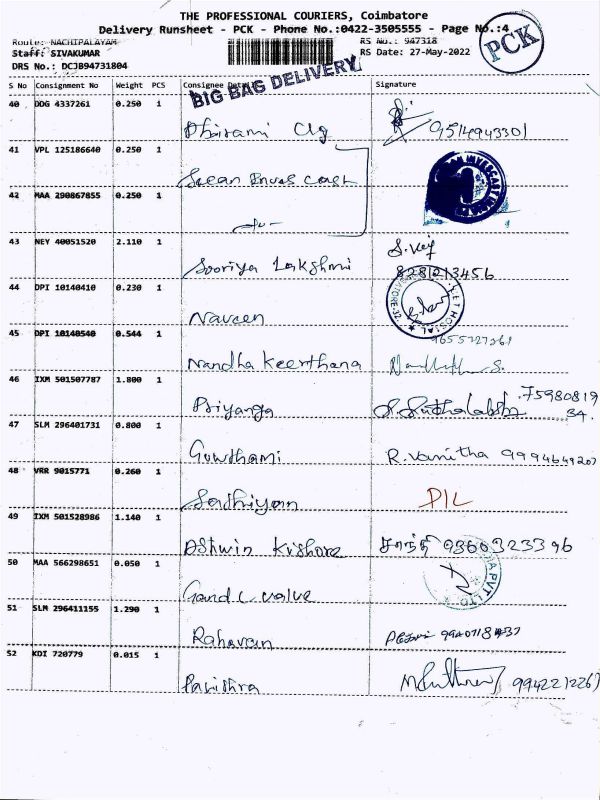 THE PROFESSIONAL COURIERS, Coimbatore
Delivery Runsheet - PCK - Phone No.:0422-3505555 - Page No.:4
Route: NACHIPALAYAM RS No.: 947318
Staff: SIVAKUMAR RS Date: 27-May-2022
PCK
DRS No.: DCJB94731804
BIG BAG DELIVERY
S No Consignment No Weight PCS Consignee Signature
40 DDG 4337261 0.250 1
9514943301
41 VPL 125186640 0.250 1
42 MAA 290867855 0.250 1
43 NEY 40051520 2.110 1
Sooriya Lakshmi 8281213456
44 DPI 10140410 0.230 1
Naveen
45 DPI 10140540 0.544 1
Nandha Keerthana
46 IXM 501507787 1.800 1
Priyanga 75980819
34.
47 SLM 296401731 0.800 1
Gowthami R. Vanitha 9994649207
48 VRR 9015771 0.260 1
Sathiyan D/L
49 IXM 501528986 1.140 1
Ashwin Kishore சாந்தி 9360323396
50 MAA 566298651 0.050 1
valve
51 SLM 296411155 1.290 1
52 KDI 720779 0.015 1
Pavithra